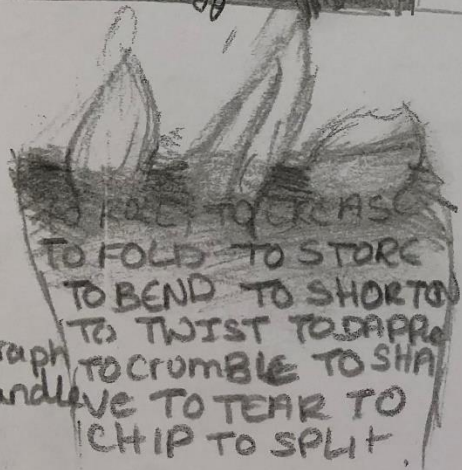 TO ROLL, TO CREASE
TO FOLD TO STORE
TO BEND TO SHORTON
TO TWIST TO DAPPL
raph TO CrumBLE TO SHA
andle VE TO TEAR TO
CHIP TO SPLIt